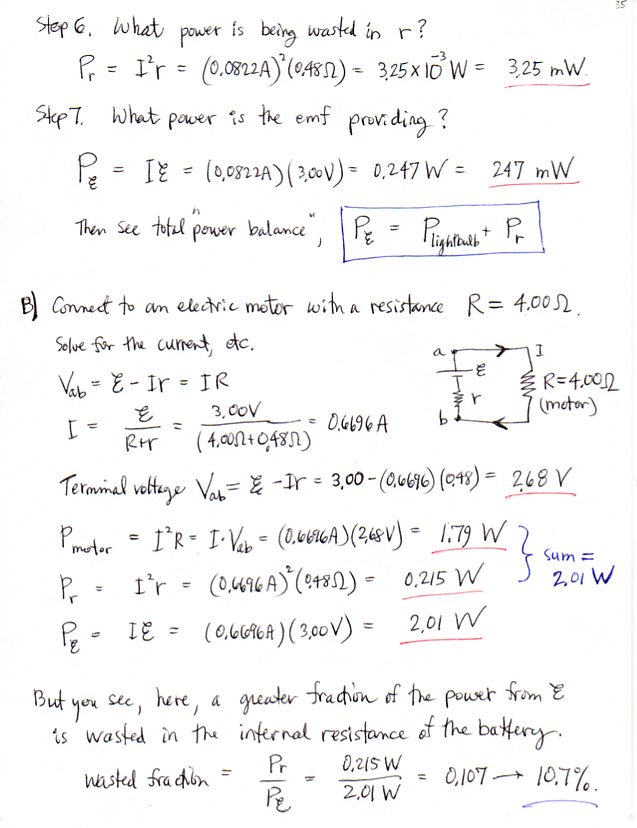 35
Step 6. What power is being wasted in r?
Pr = I²r = (0.0822A)²(0.48Ω) = 3.25 x 10⁻³ W = 3.25 mW.
Step 7. What power is the emf providing?
Pℰ = Iℰ = (0.0822A)(3.00V) = 0.247 W = 247 mW
Then see total "power balance", Pℰ = Plightbulb + Pr
B) Connect to an electric motor with a resistance R = 4.00Ω.
Solve for the current, etc.
Vab = ℰ - Ir = IR
I = ℰ/(R+r) = 3.00V/(4.00Ω+0.48Ω) = 0.6696 A
a I
ℰ
r
b
R=4.00Ω
(motor)
Terminal voltage Vab = ℰ - Ir = 3.00 - (0.6696)(0.48) = 2.68 V
Pmotor = I²R = I·Vab = (0.6696A)(2.68V) = 1.79 W
Pr = I²r = (0.6696A)²(0.48Ω) = 0.215 W
sum =
2.01 W
Pℰ = Iℰ = (0.6696A)(3.00V) = 2.01 W
But you see, here, a greater fraction of the power from ℰ
is wasted in the internal resistance of the battery.
wasted fraction = Pr/Pℰ = 0.215 W/2.01 W = 0.107 → 10.7%.